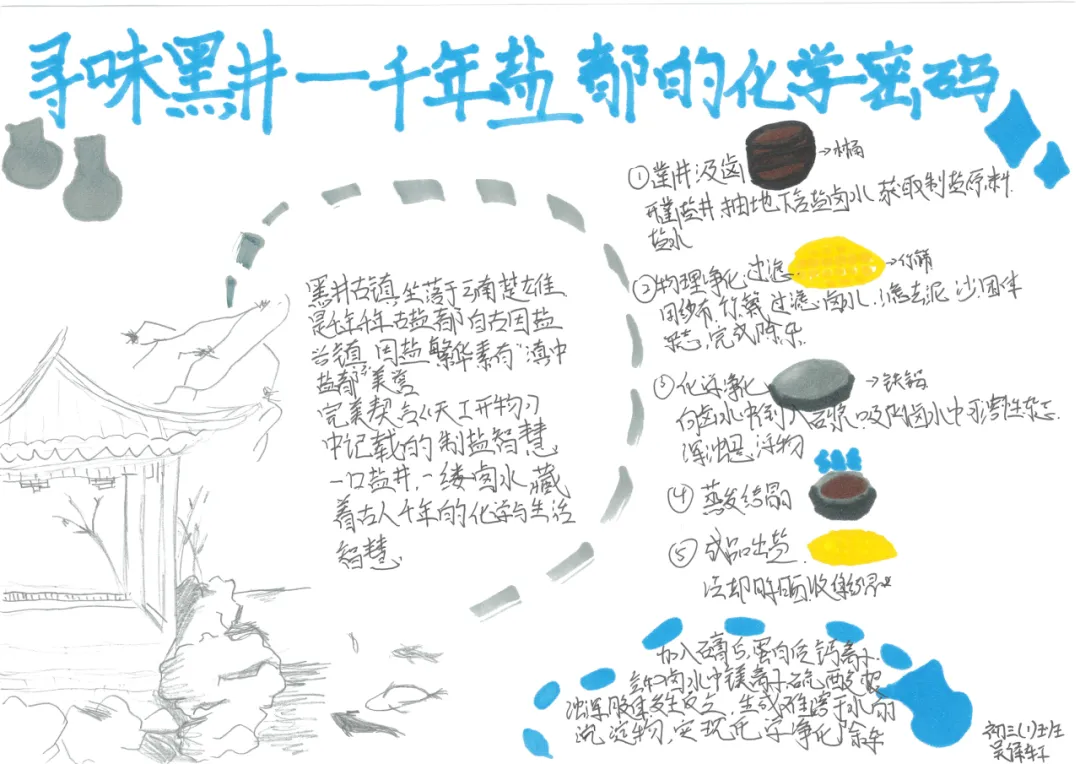 寻味黑井—千年盐都的化学密码
黑井古镇,坐落于云南楚雄
是千年千年古盐都自古因盐
兴镇,因盐繁华素有"滇中
盐都"美誉
完美契合《天工开物》
中记载的制盐智慧
一口盐井,一缕卤水藏
着古人千年的化学与生活
智慧。
①凿井汲卤
→木桶
凿盐井抽地下含盐卤水获取制盐原料.
盐水
②物理净化:过滤.
→竹筛
用纱布.竹筛过滤卤水,滤去泥沙.固体
杂志,完成除杂.
③化学净化
→铁锅
向卤水中倒入豆浆.吸附卤水中可溶性杂志.
浮物
④蒸发结晶
⑤成品出盐
冷却后收集
加入石膏后,蛋白质钙离子.
卤水中镁离子.硫酸根
发生反应,生成难溶于水的
沉淀物,实现化学净化除杂
初三(1)班